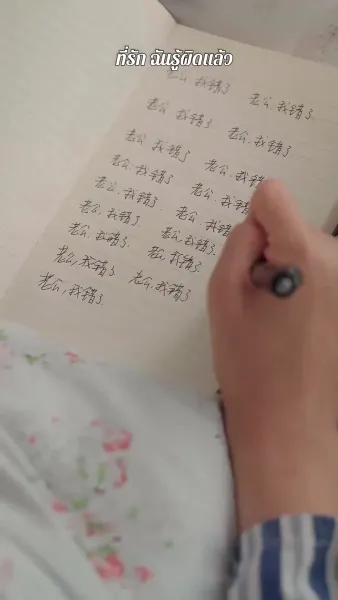 ที่รัก ฉันรู้ผิดแล้ว
老公.我错了 老公.我错了
老公.我错了 老公.我错了
老公.我错了 老公.我错
老公.我错了 老公.我错了
老公.我错了 老公.我错了
老公,我错了 老公,我错了.
老公,我错了. 老公,我错了
老公,我错了 老公.我错了
老公,我错了